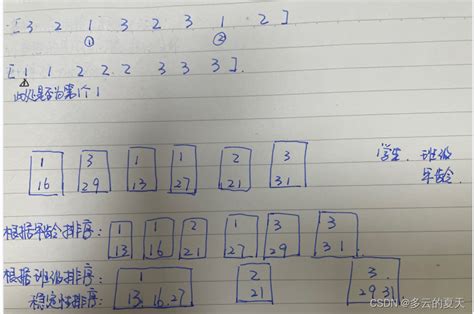 [ 3 2 1 3 2 3 1 2 ].
① ②
[ 1 1 2 2 2 3 3 3 ].
此处是否为第1个1
1 3 1 1 2 3 学生. 班级
16 29 13 27 21 31 年龄.
根据年龄排序: 1 1 2 1 3 3
13 16 21 27 29 31
根据班级排序: 1 2 3.
稳定性排序: 13.16.27 21 29 31
CSDN @多云的夏天